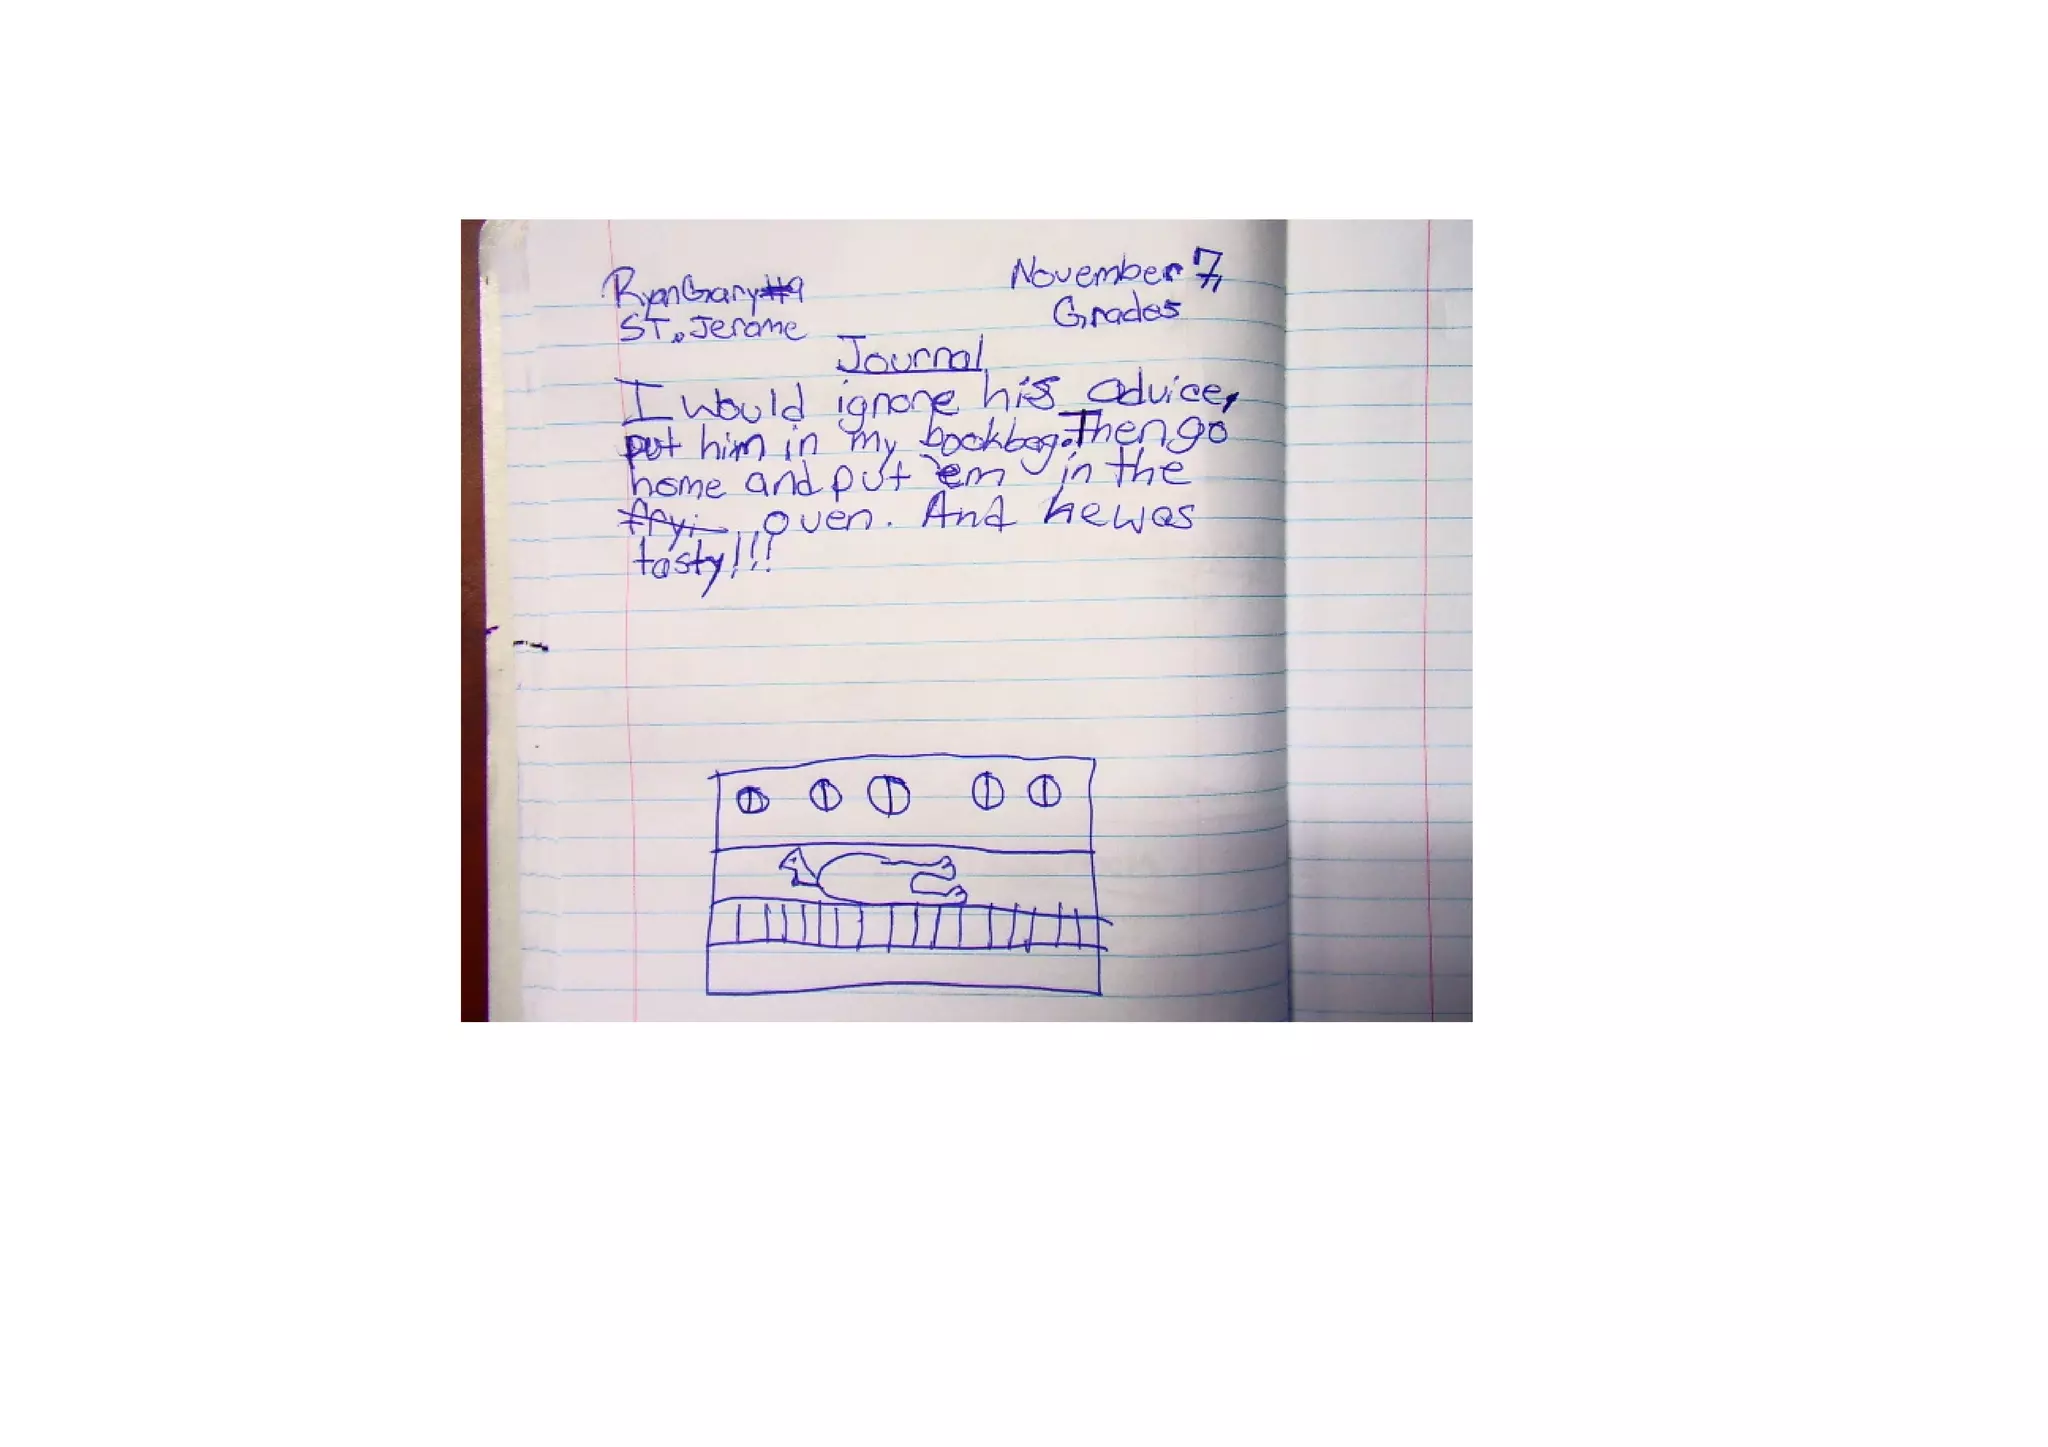 Ryan Gary #9 November 7,
ST. Jerome Grade 5
Journal
I would ignore his advice,
put him in my bookbag. Then go
home and put 'em in the
fryi oven. And he was
tasty!!!